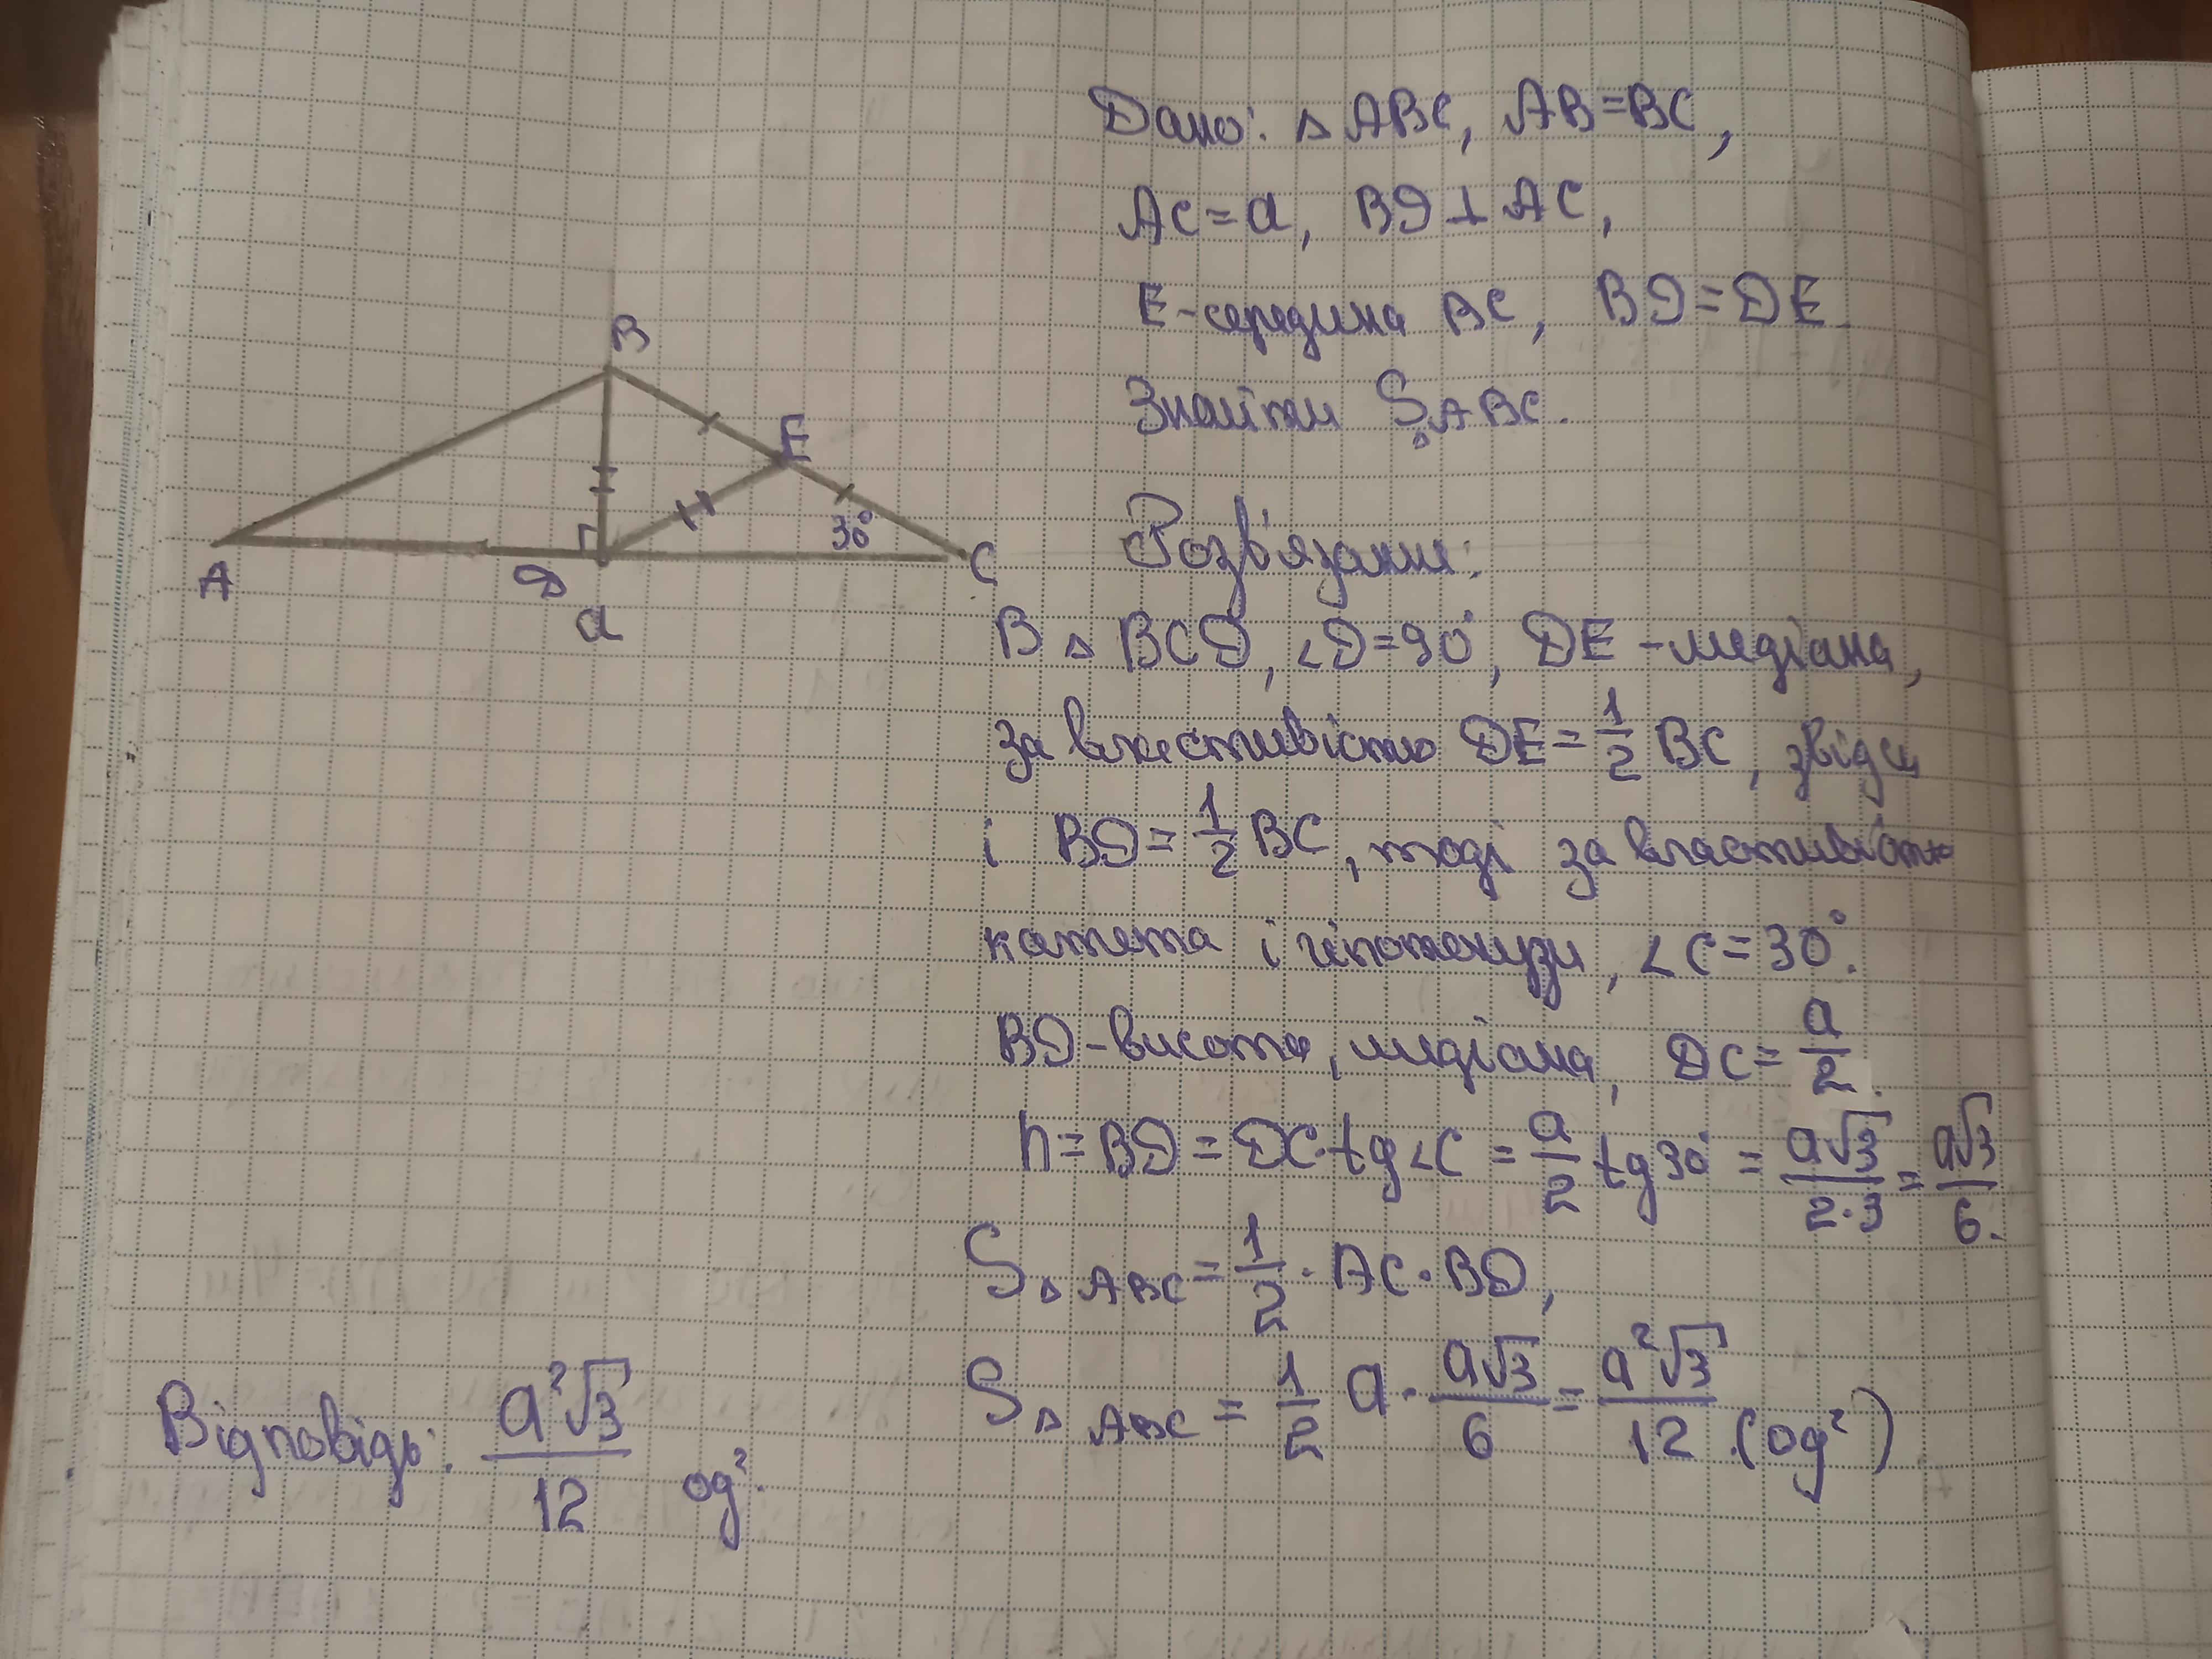 Дано: △ ABC, AB=BC,
AC=a, BD⊥AC,
E-середина BC, BD=DE.
Знайти S△ABC.
B
E
30°
A
D
C
a
Розв'язання:
В △ BCD, ∠D=90°, DE-медіана,
за властивістю DE=1/2 BC, звідси
і BD=1/2 BC, тоді за властивістю
катета і гіпотенузи, ∠C=30°.
BD-висота, медіана, DC=a/2.
h=BD=DC·tg∠C=a/2 tg30°=a√3/2·3=a√3/6.
S△ABC=1/2·AC·BD,
S△ABC=1/2 a·a√3/6=a²√3/12 (од²)
Відповідь: a²√3/12 од².